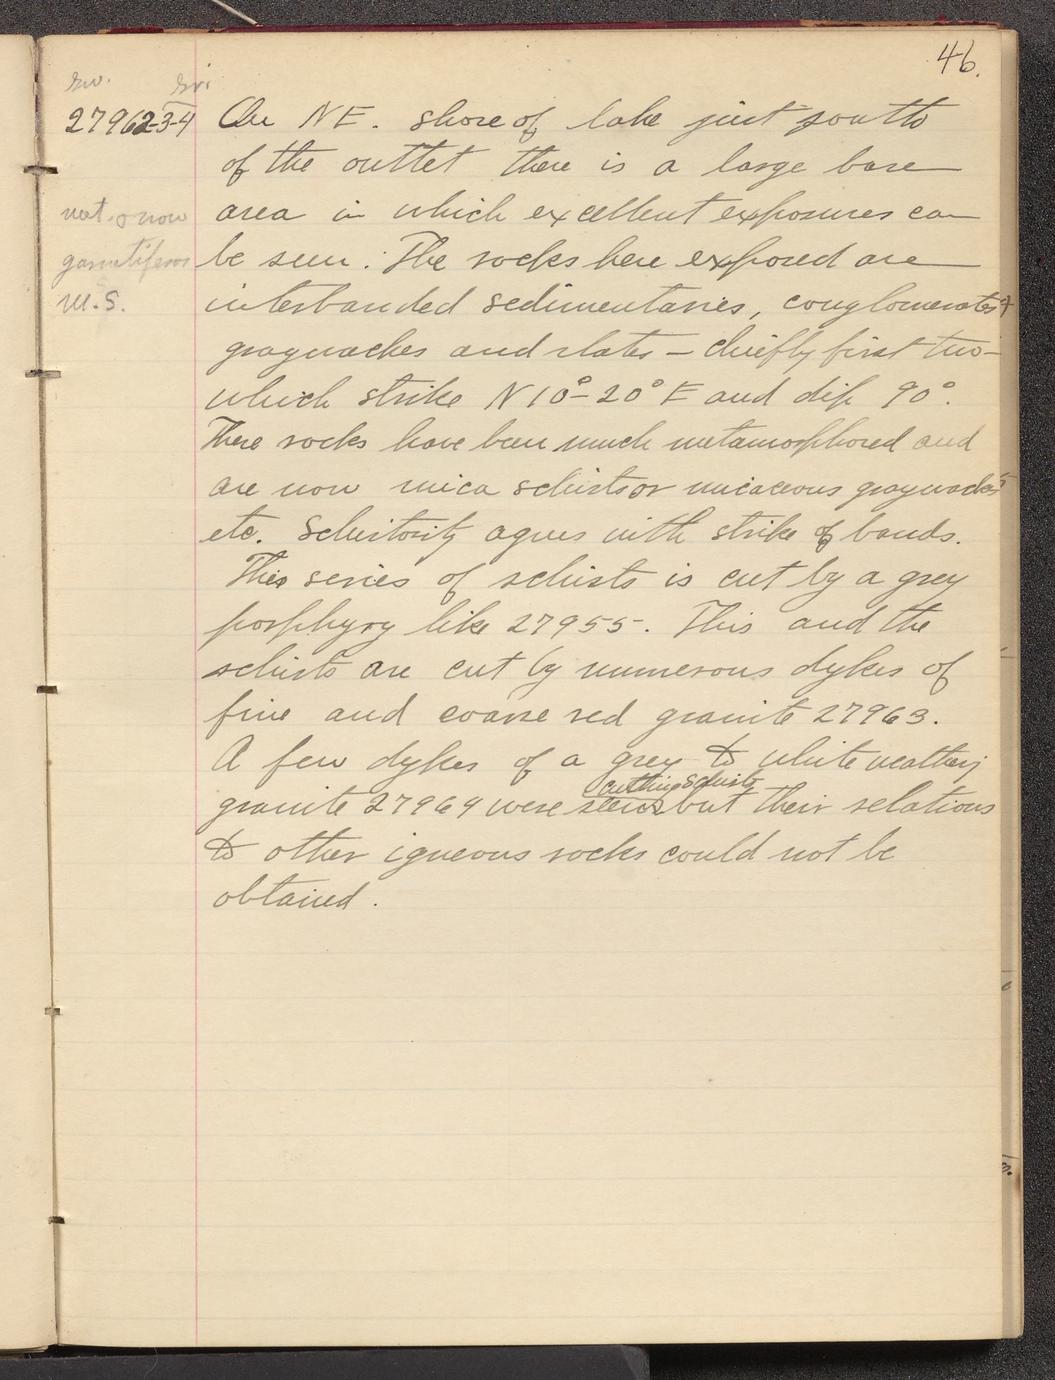 46.
27962-3-4
On NE. shore of lake just south
of the outlet there is a large bare
area in which excellent exposures can
be seen. The rocks here exposed are
interbanded sedimentaries, conglomerates &
graywackes and slates – chiefly first two –
which strike N10°-20°E and dip 90°.
These rocks have been much metamorphosed and
are now mica schists or micaceous graywackes
etc. Schistosity agrees with strike of bands.
This series of schists is cut by a grey
porphyry like 27955. This and the
schists are cut by numerous dykes of
fine and coarse red granite 27963.
A few dykes of a grey to white weathering
cutting schists
granite 27964 were seen but their relations
to other igneous rocks could not be
obtained.
not now
garnetiferous
M.S.